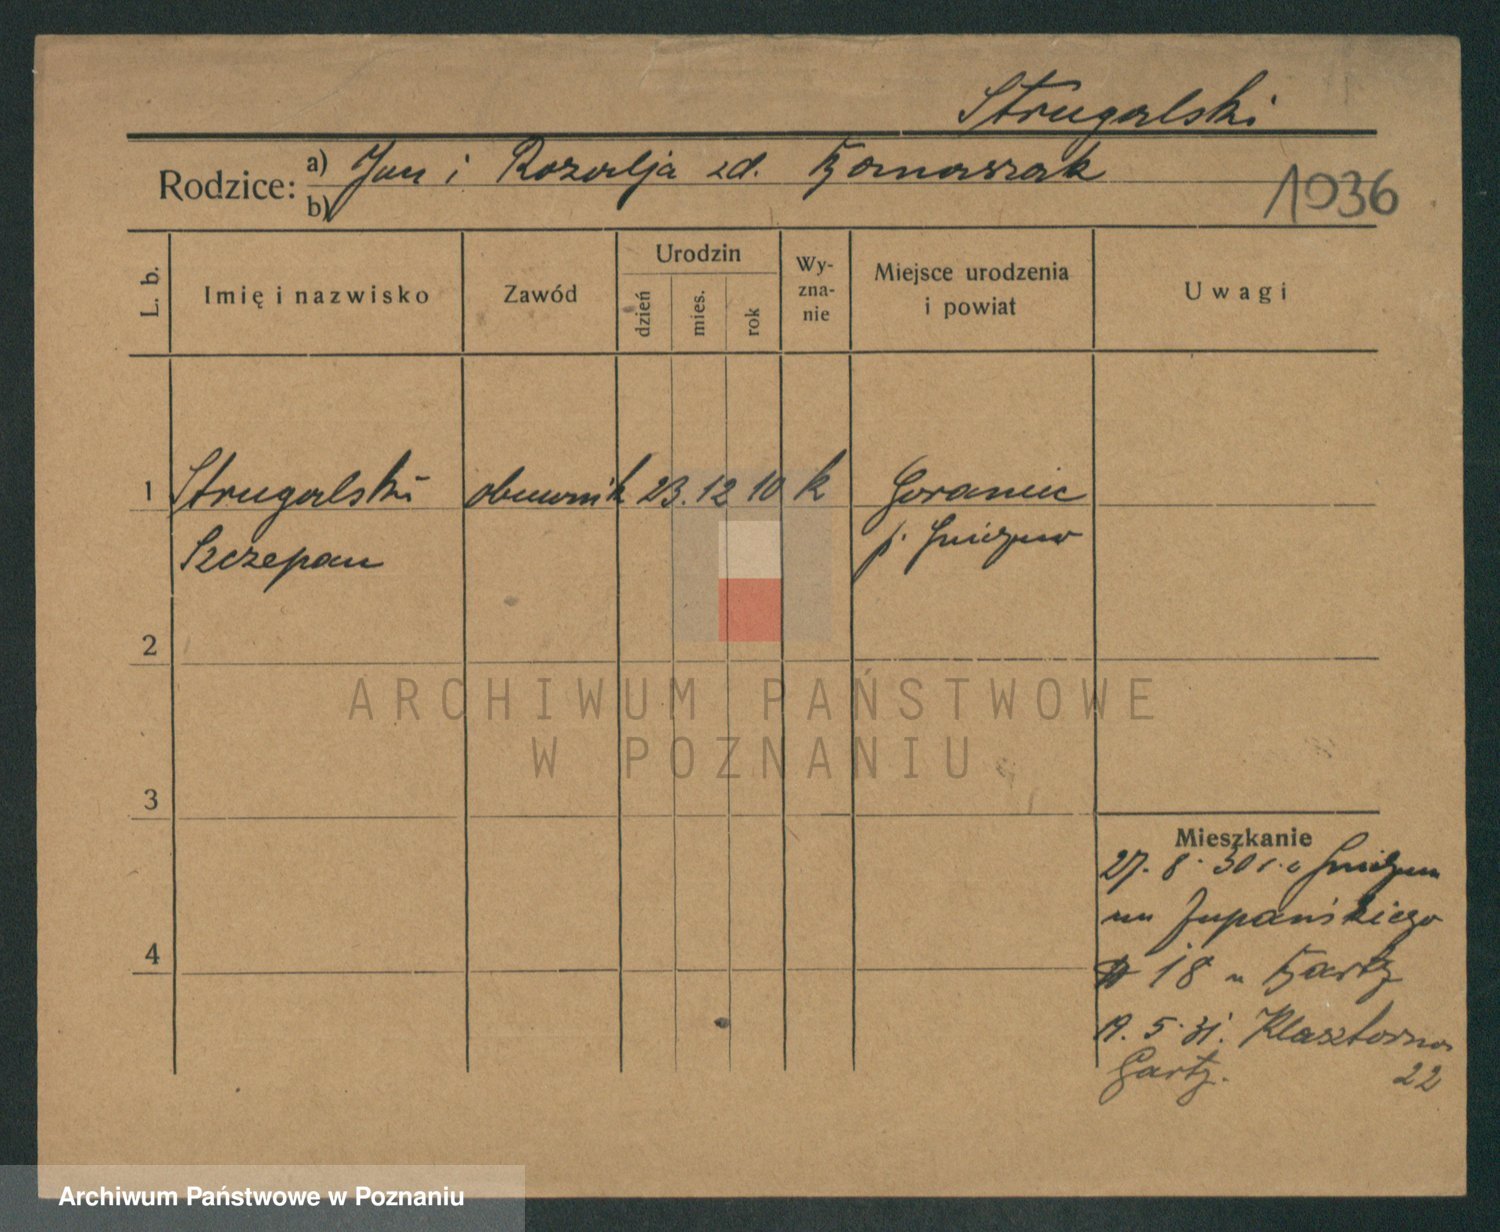 Strugalski
Rodzice: a) Jan i Rozalja zd. Tomaszak
b)
1036
L. b.
Imię i nazwisko
Zawód
Urodzin
dzień
mies.
rok
Wy-
zna-
nie
Miejsce urodzenia
i powiat
Uwagi
1 Strugalski obuwnik 23. 12 10 k
Szczepan
p. Gniezno
2
3
4
Mieszkanie
27. 8. 30 r. z Gniezna
Żupańskiego
18 u
19. 5. 31. Klasztorna
22
ARCHIWUM PAŃSTWOWE
W POZNANIU
Archiwum Państwowe w Poznaniu